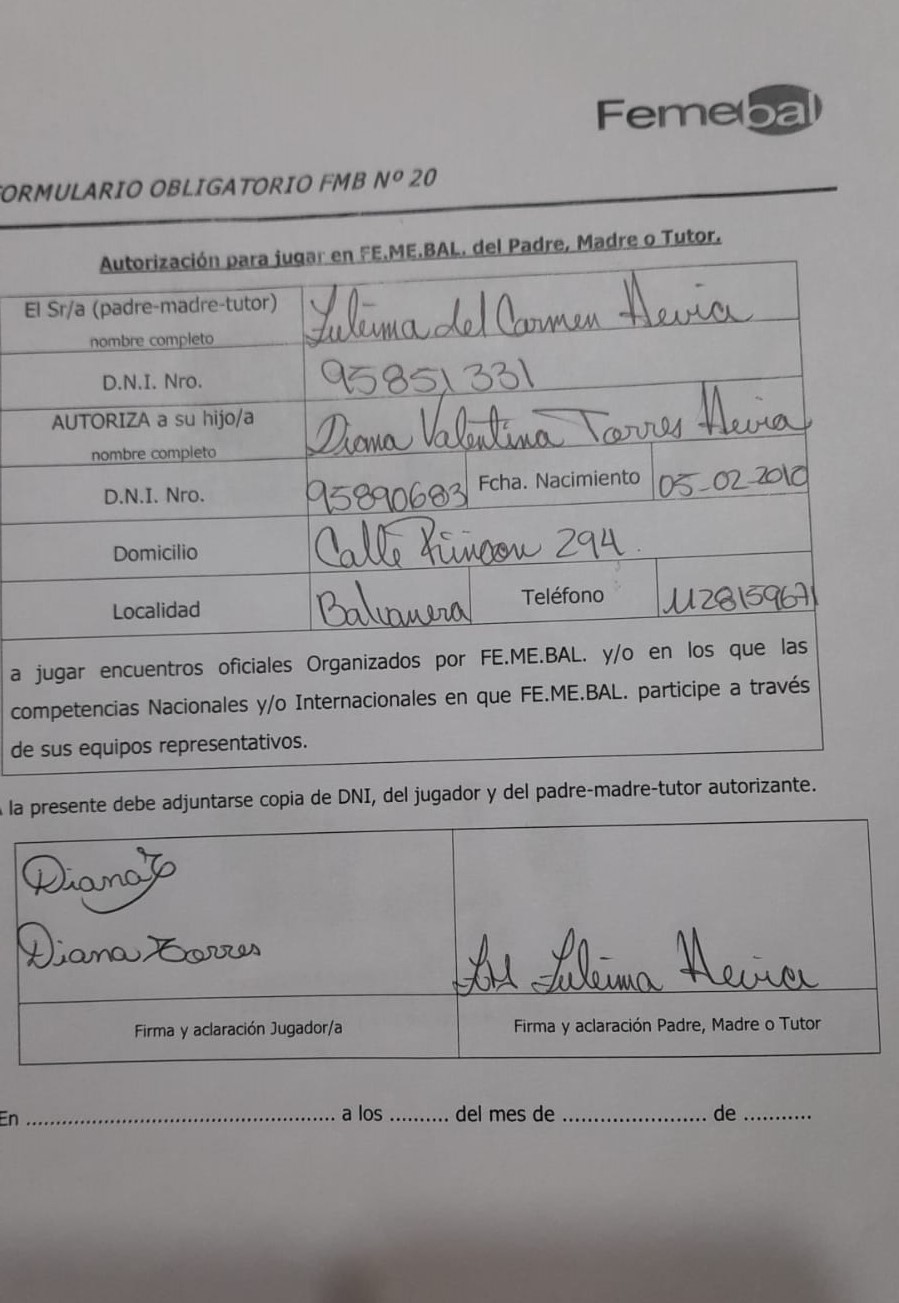 Femebal
FORMULARIO OBLIGATORIO FMB Nº 20
Autorización para jugar en FE.ME.BAL. del Padre, Madre o Tutor.
El Sr/a (padre-madre-tutor) Zuleima del Carmen Hevia
nombre completo
D.N.I. Nro. 95851331
AUTORIZA a su hijo/a Diana Valentina Torres Hevia
nombre completo
D.N.I. Nro. 95890683 Fcha. Nacimiento 05-02-2010
Domicilio Calle Rincon 294
Localidad Balvanera Teléfono 1128159671
a jugar encuentros oficiales Organizados por FE.ME.BAL. y/o en los que las
competencias Nacionales y/o Internacionales en que FE.ME.BAL. participe a través
de sus equipos representativos.
A la presente debe adjuntarse copia de DNI, del jugador y del padre-madre-tutor autorizante.
Diana T
Diana Torres
ZH Zuleima Hevia
Firma y aclaración Jugador/a Firma y aclaración Padre, Madre o Tutor
En .................................................... a los .......... del mes de ........................ de ...........